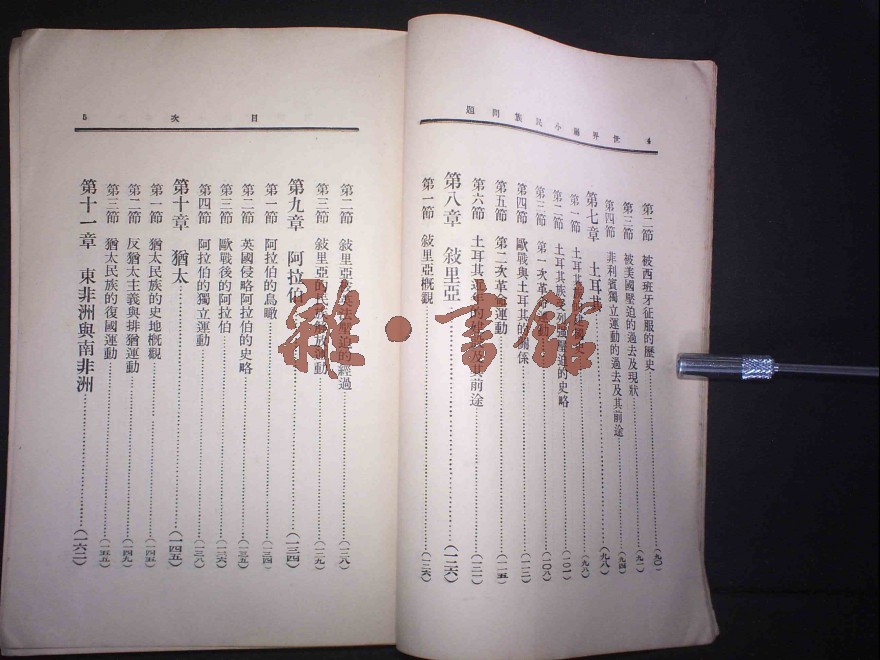 世界弱小民族問題 4
第二節 被西班牙征服的歷史……(九〇)
第三節 被美國壓迫的過去及現狀……(九一)
第四節 菲利賓獨立運動的過去及其前途……(九四)
第七章 土耳其……(九八)
第一節 土耳其……史……(九八)
第二節 土耳其族受列強壓迫的史略……(一〇一)
第三節 第一次革命運動……(一〇八)
第四節 歐戰與土耳其的關係……(一一二)
第五節 第二次革命運動……(一一五)
第六節 土耳其近年的……及其前途……(一二一)
第八章 敍里亞……(一二六)
第一節 敍里亞概觀……(一二六)
目次 5
第二節 敍里亞被英法壓迫的經過……(一二八)
第三節 敍里亞的民族解放運動……(一二九)
第九章 阿拉伯……(一三四)
第一節 阿拉伯的鳥瞰……(一三四)
第二節 英國侵略阿拉伯的史略……(一三五)
第三節 歐戰後的阿拉伯……(一三六)
第四節 阿拉伯的獨立運動……(一三八)
第十章 猶太……(一四五)
第一節 猶太民族的史地概觀……(一四五)
第二節 反猶太主義與排猶運動……(一四九)
第三節 猶太民族的復國運動……(一五五)
第十一章 東非洲與南非洲……(一六二)
雜·書館